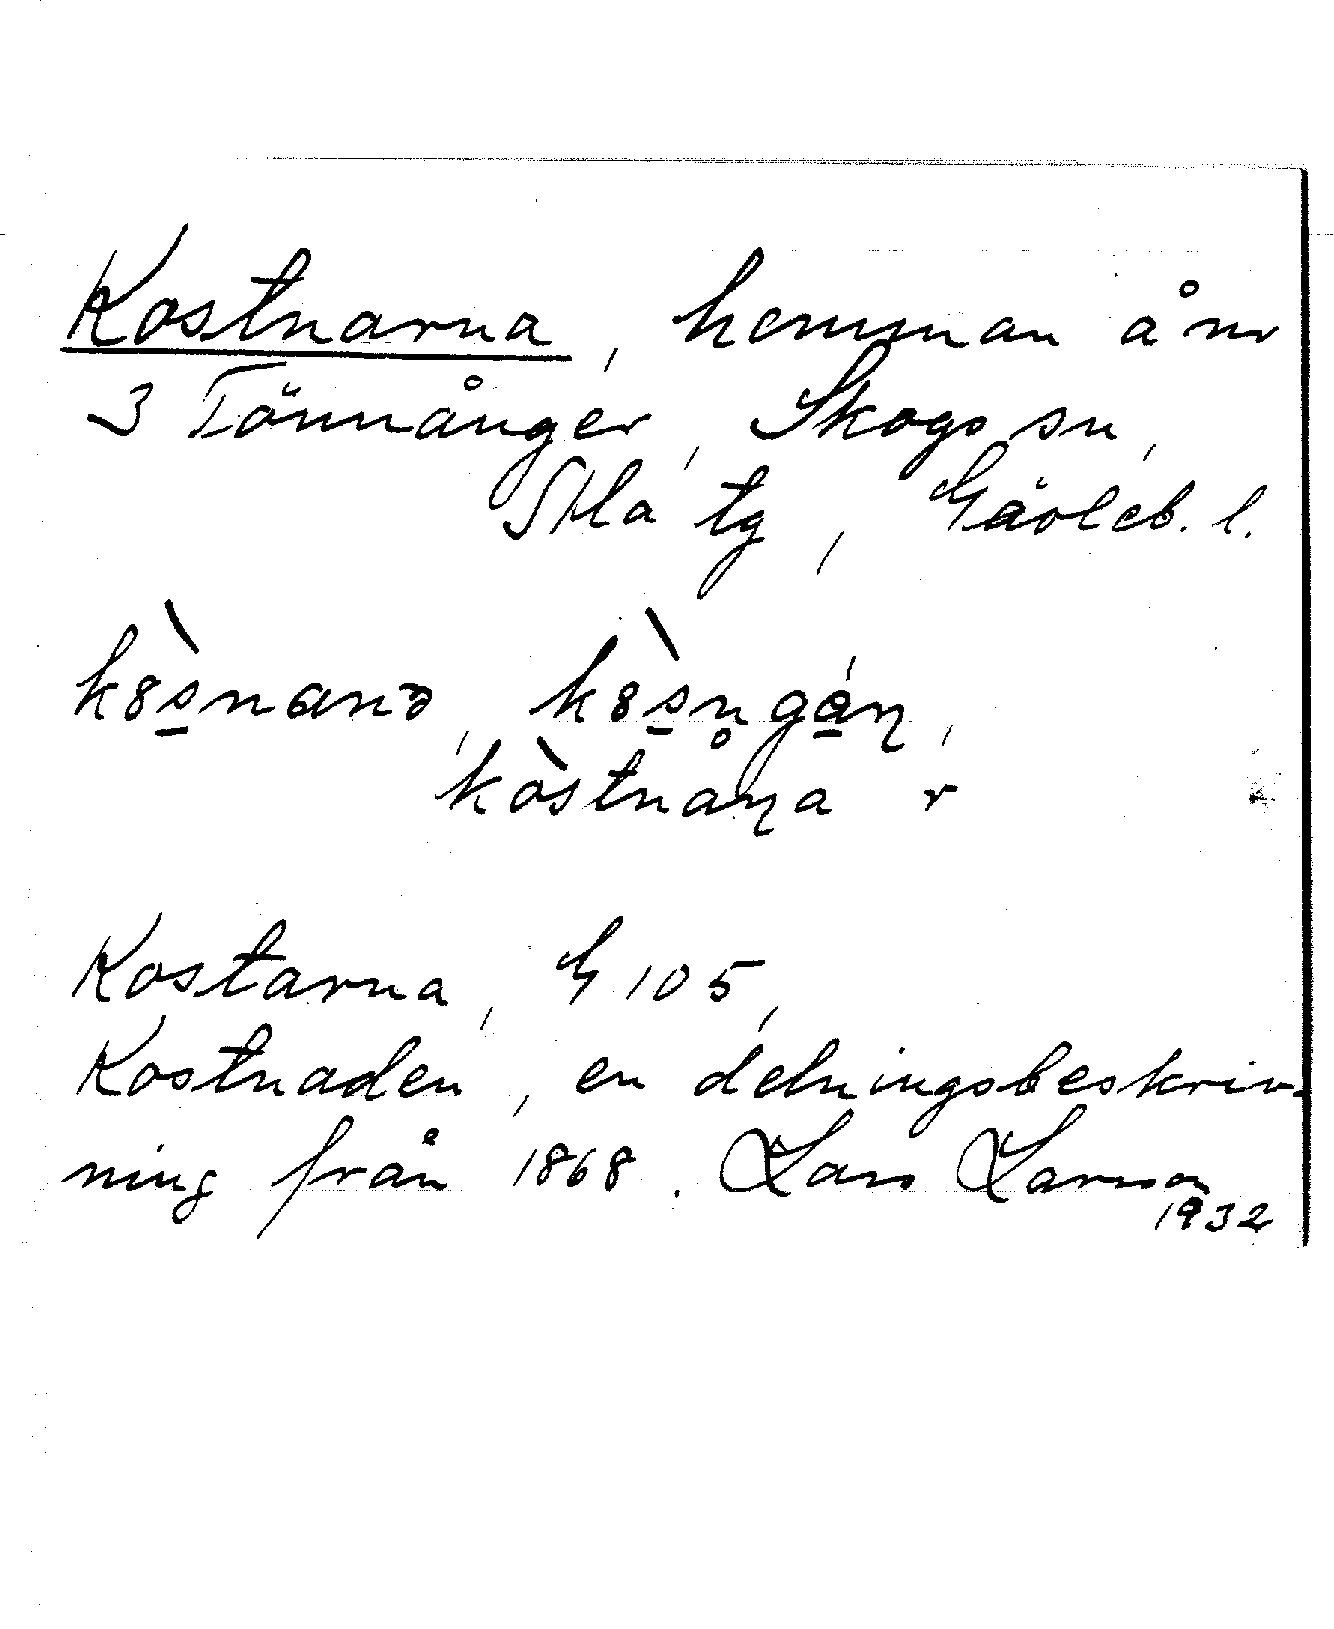 Kostnarna, hemman å nr
3 Tönnånger, Skogs sn,
Åla tg, Gävleb. l.
kȣ̀s̲nanə, kȣ̀s̲n̥gán,
kòstnaṇa r
Kostarna, G 105,
Kostnaden, en delningsbeskriv-
ning från 1868. Lars Larsson
1932